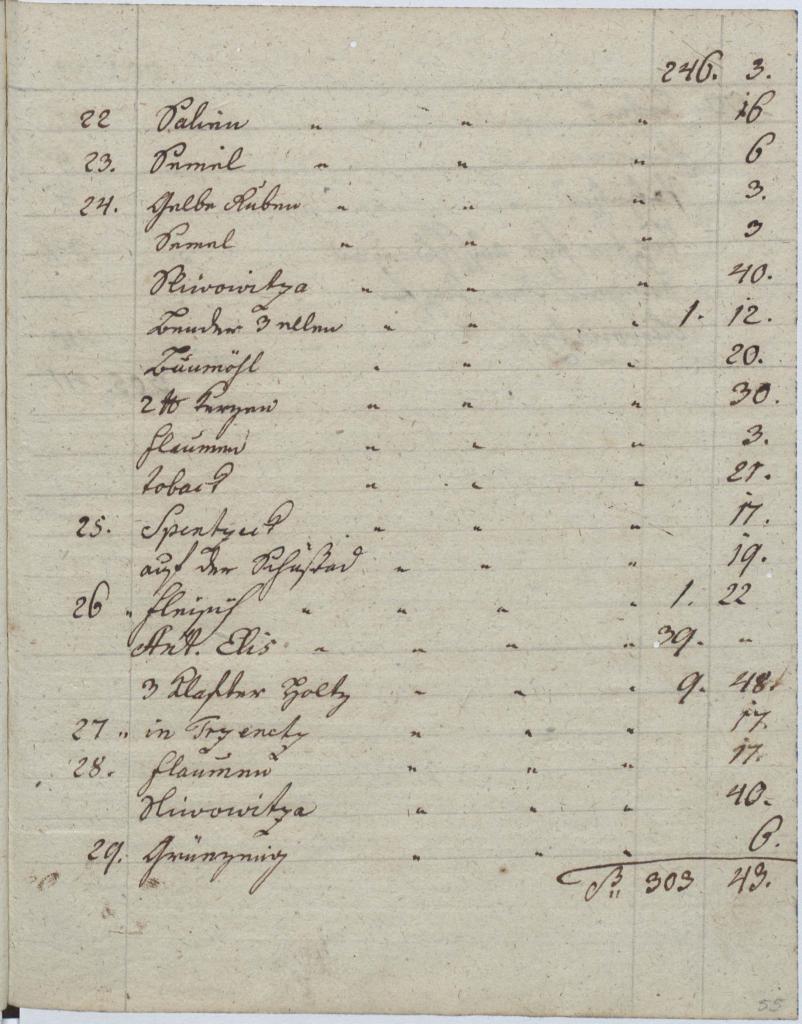 246. 3.
22 Salien " " " 16
23. Semel " " " 6
24. Gelbe Ruben " " " 3.
Semel " " " 3
Sliwowitza " " " 40.
Bender 3 ellen " " " 1. 12.
Baumöhl " " " 20.
2 ℔ Kerzen " " " 30.
flaumen " " " 3.
toback " " " 21.
25. " " " 17.
auf der " " " 19.
26 " fleisch " " " " 1. 22
Ant. Elis " " " " 39. "
3 Klafter Holtz " " " 9. 48.
27 " in " " " 17.
28. flaumen " " " 17.
Sliwowitza " " " 40.
29. Grünzeug " " " 6.
303 43.
55